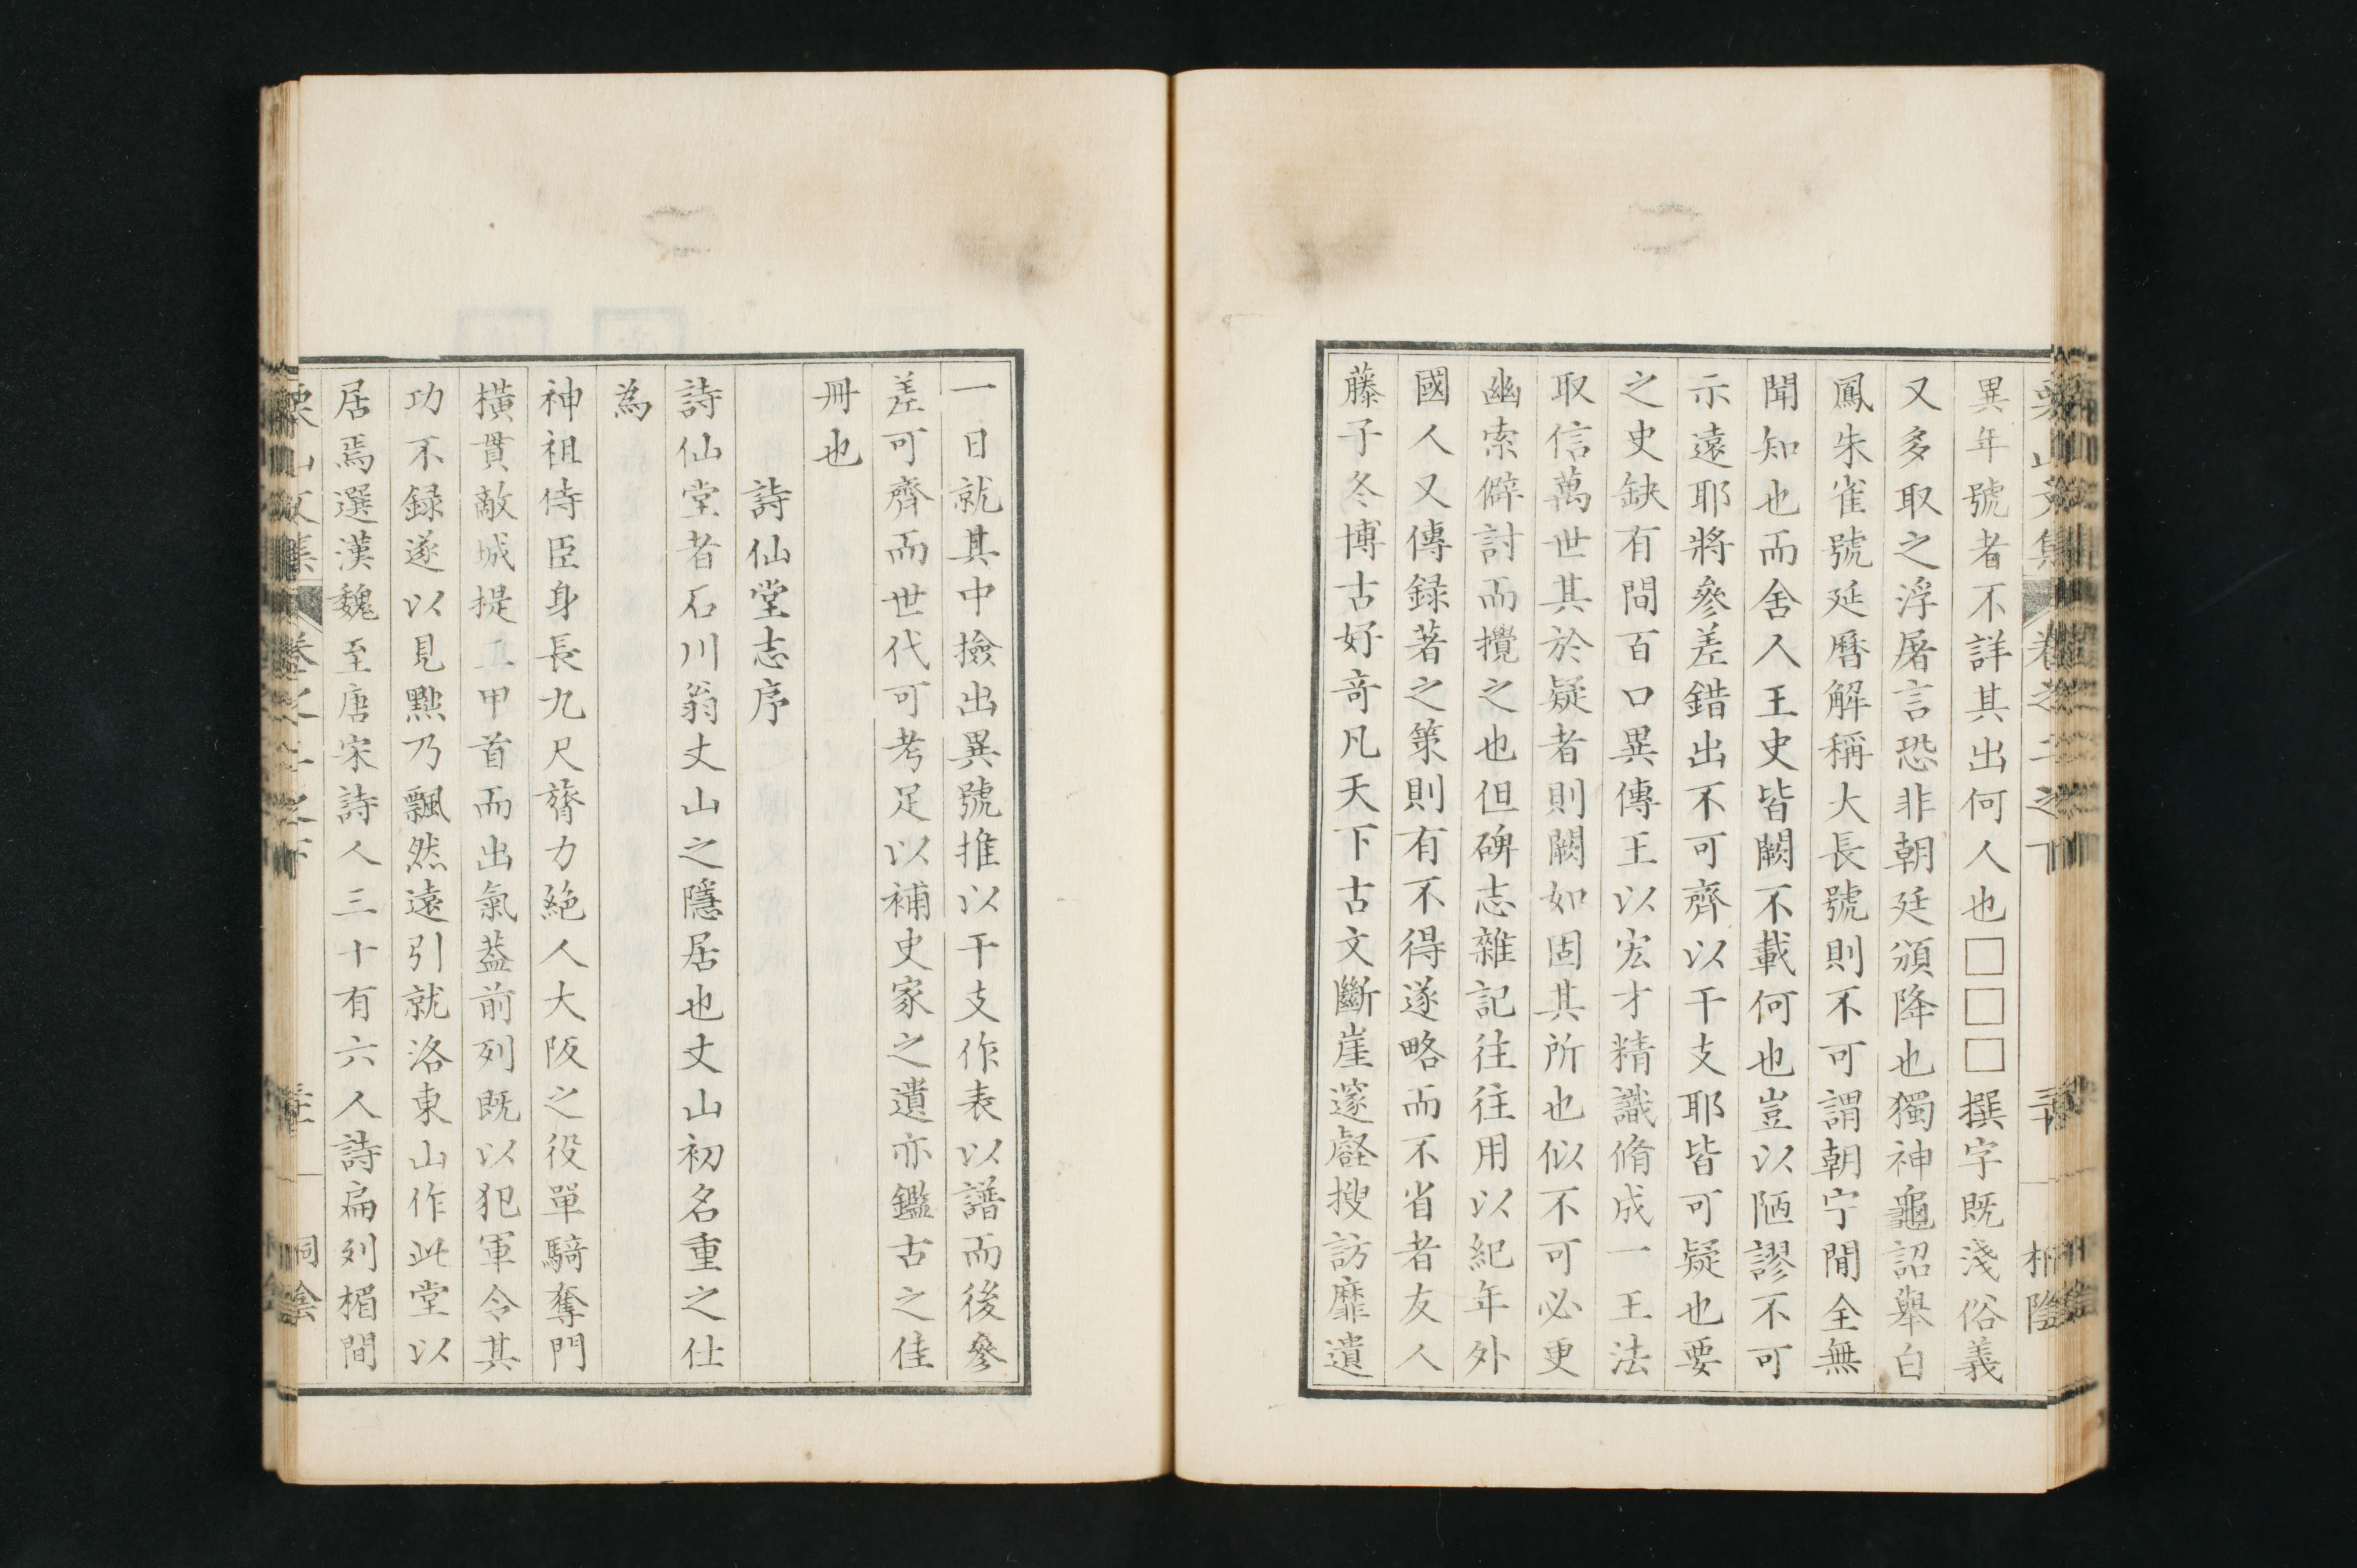 異年號者不詳其出何人也□□□撰字既淺俗義
又多取之浮屠言恐非朝廷頒降也獨神龜詔舉白
鳳朱雀號延曆解稱大長號則不可謂朝宁間全無
聞知也而舍人王史皆闕不載何也豈以陋謬不可
示遠耶將參差錯出不可齊以干支耶皆可疑也要
之史缺有間百口異傳王以宏才精識脩成一王法
取信萬世其於疑者則闕如固其所也似不可必更
幽索僻討而攪之也但碑志雜記往往用以紀年外
國人又傳録著之策則有不得遂略而不省者友人
藤子冬博古好奇凡天下古文斷崖邃壑搜訪靡遺
一日就其中撿出異號推以干支作表以譜而後參
差可齊而世代可考足以補史家之遺亦鑑古之佳
冊也
詩仙堂志序
詩仙堂者石川翁丈山之隱居也丈山初名重之仕
為
神祖侍臣身長九尺膂力絶人大阪之役單騎奪門
横貫敵城提二甲首而出氣葢前列既以犯軍令其
功不録遂以見黜乃飄然遠引就洛東山作此堂以
居焉選漢魏至唐宋詩人三十有六人詩扁列楣間